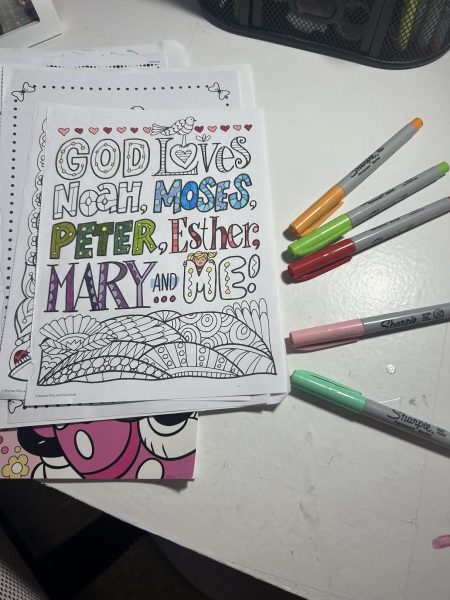 GOD Loves
NOAH, MOSES,
PETER, Esther,
MARY AND... ME!
Sharpie
Sharpie
Sharpie
Sharpie
Sharpie